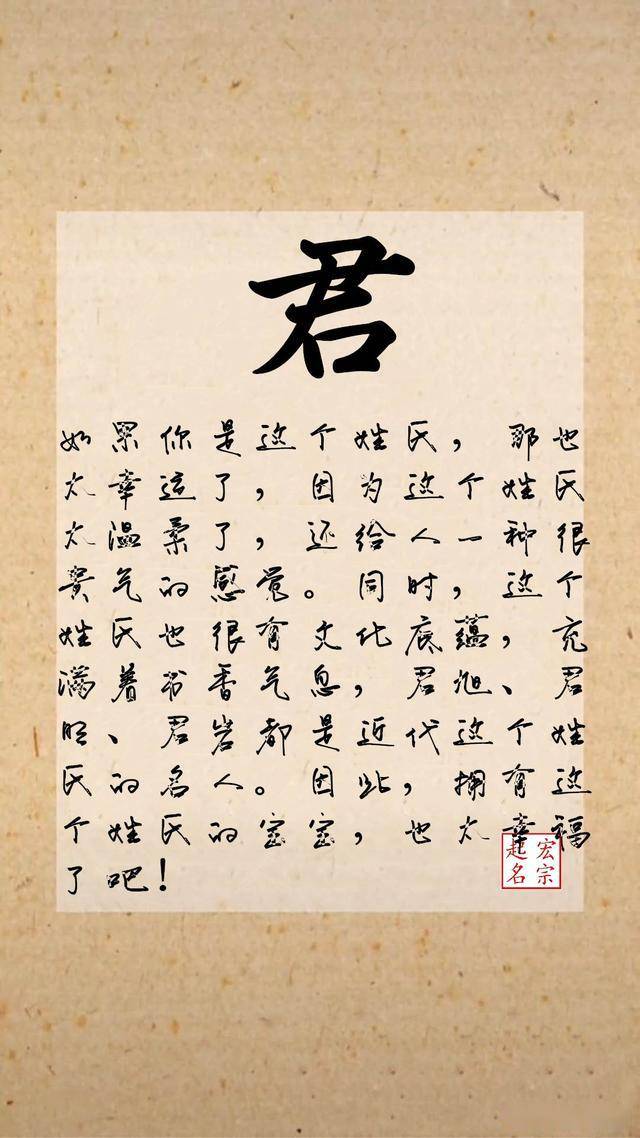 君
如果你是这个姓氏，那也
太幸运了，因为这个姓氏
太温柔了，还给人一种很
贵气的感觉。同时，这个
姓氏也很有文化底蕴，充
满着书香气息，君旭、君
明、君岩都是近代这个姓
氏的名人。因此，拥有这
个姓氏的宝宝，也太幸福
了吧！
宏宗
起名